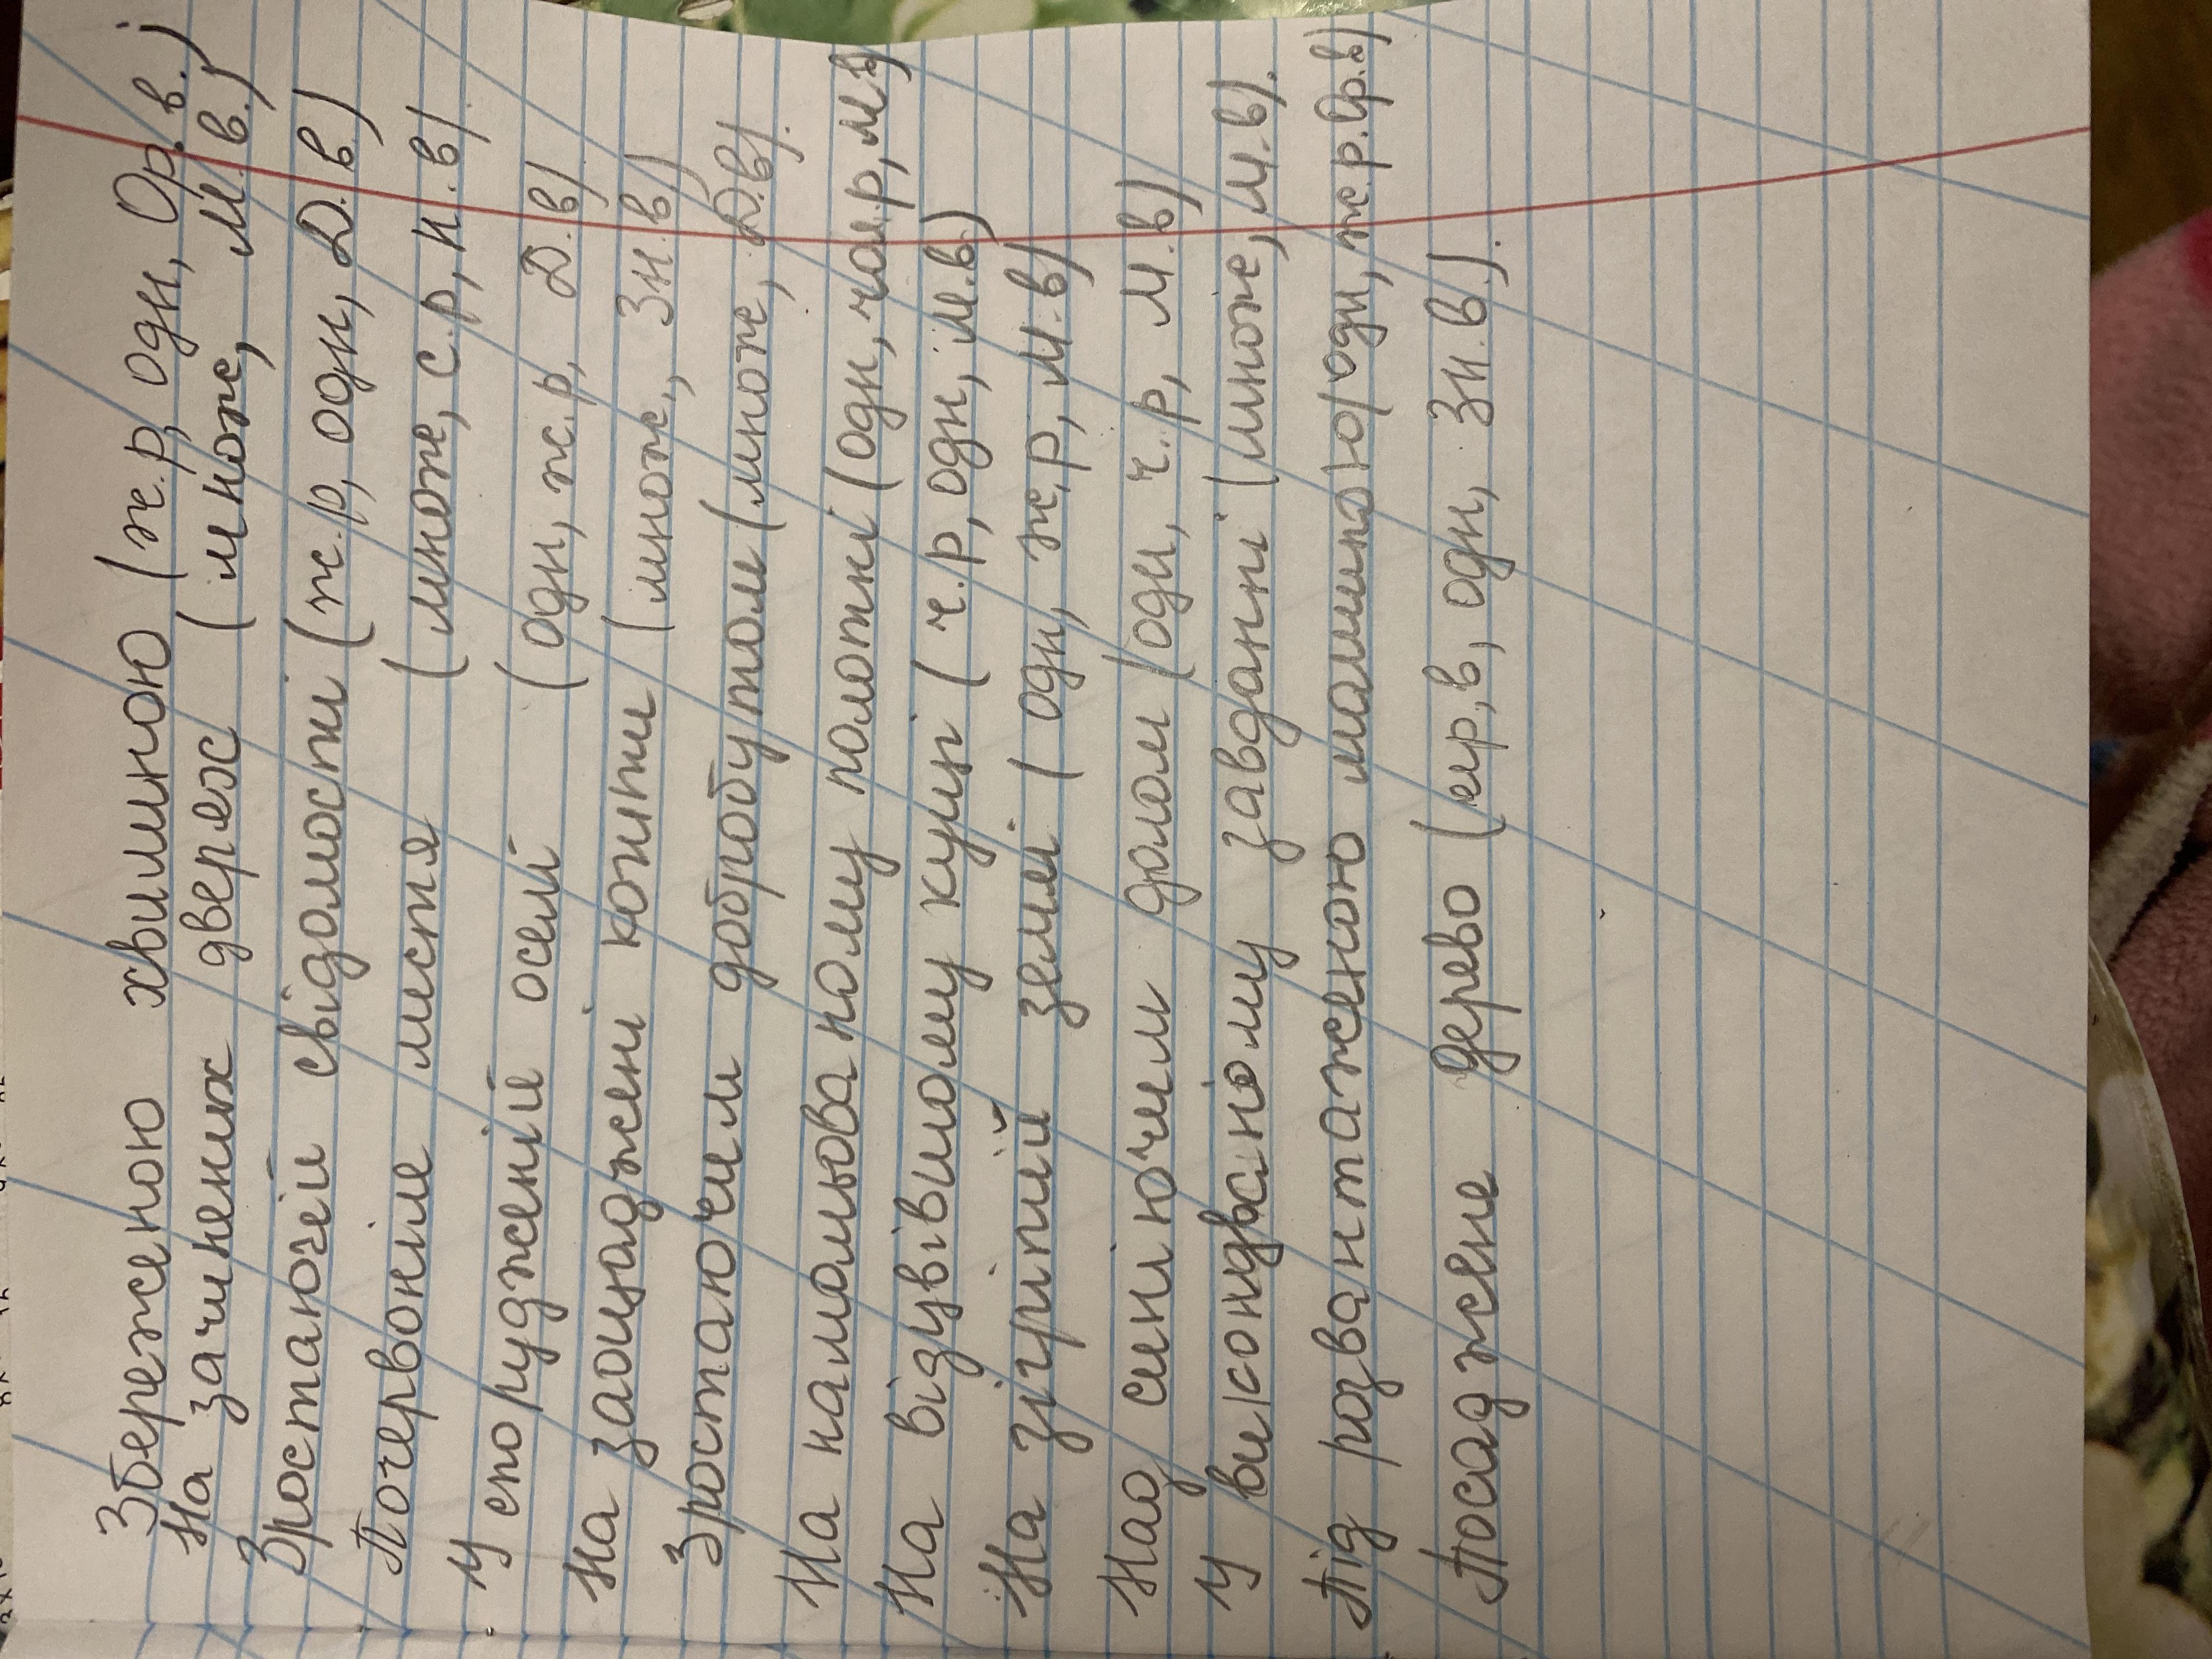 Збереженою хвилиною (ж.р, одн, Ор. в.)
На зачинених дверях (множ, М. в.)
Зростаючій свідомості (ж.р, одн, Д. в.)
Почервоніле листя (множ, с.р, Н. в).
У спорудженій оселі (одн, ж.р, Д. в)
На заощаджені кошти (множ., Зн. в.)
Зростаючим добробутом (множ, Д.в).
На намальованому полотні (одн, чол.р, М.в)
На відцвівшому кущі (ч.р, одн, М.в)
На зігрітій землі (одн, ж.р, М.в)
Над синіючим домом (одн, ч.р, М.в)
У завданні (множ, М.в).
Під розвантаженою машиною (одн, ж.р. Ор.в)
Посаджене дерево (одн, Зн.в.).